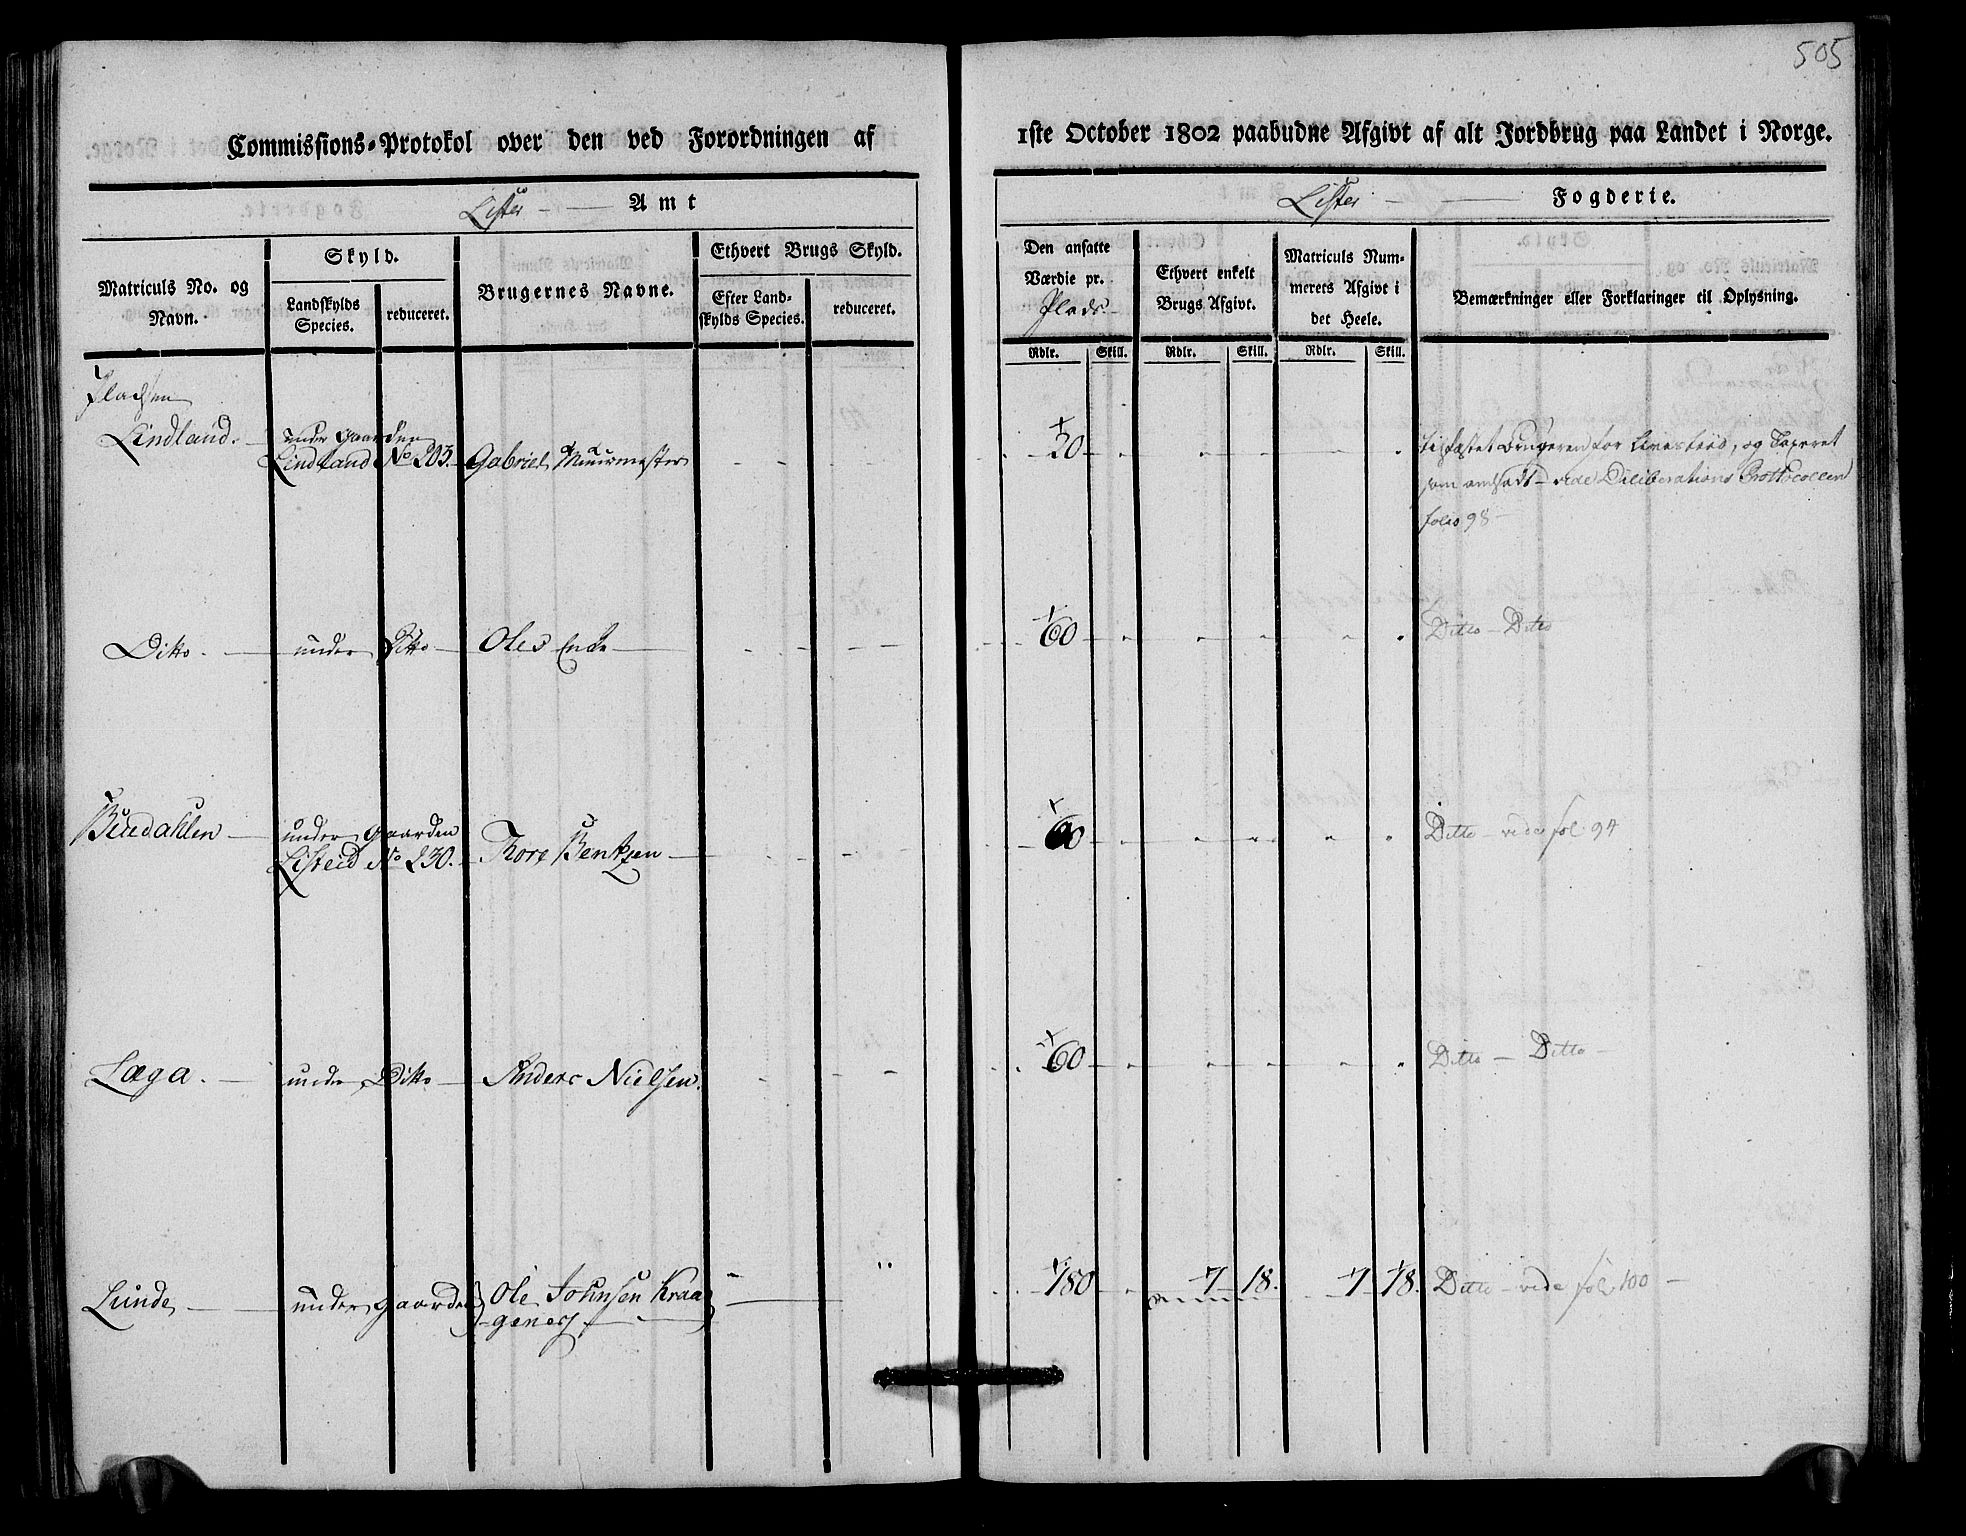 505
Commissions-Protokol over den ved Forordningen af
1ste October 1802 paabudne Afgivt af alt Jordbrug paa Landet i Norge.
Lister Amt
Lister Fogderie.
Matriculs No. og Navn.
Skyld.
Landskylds Species.
reduceret.
Brugernes Navne.
Ethvert Brugs Skyld.
Efter Landskylds Species.
reduceret.
Den ansatte Værdie pr. Plads
Ethvert enkelt Brugs Afgivt.
Matriculs Nummerets Afgivt i det Heele.
Bemærkninger eller Forklaringer til Oplysning.
Rdlr. Skill. Rdlr. Skill. Rdlr. Skill.
Pladsen
Lindland. under Gaarden
Lindland No 203. Gabriel Muurmester 20
og Taxeret
som anført vide Deliberations Protocollen
folio 98
Ditto. under Ditto Oles Enke 60 Ditto Ditto
under Gaarden
Listeid No 230. Tore Bentsen 60 Ditto vide fol 94
Læga. under Ditto Anders Nielsen. 60 Ditto Ditto
Lunde under Gaarden Ole Johnsen Kraa 180 7 18. 7 18. Ditto vide fol 100
genes